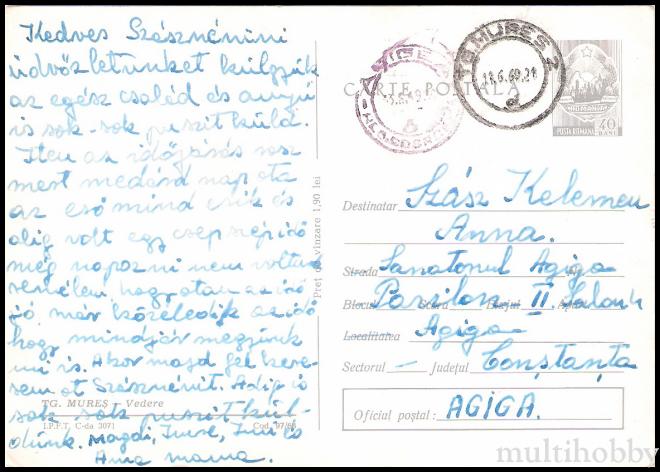 Kedves Szásznénini
üdvözletünket küldjük
az egész család és anyu
is sok-sok puszit küld.
Itten az időjárás rosz
mert medárd nap óta
az eső mind esik és
alig volt egy csep szép idő
még napozni nem voltunk
remélem hogy otan az idő
jó már közeledik az idő
hogy mindjár megyünk
mi is. Akor majd fel keresem
ot Szásznénit. Adig is
sok sok puszit küldünk.
Magdi, Imre, Imi és
Ana mama.
TG. MUREȘ - Vedere
I.P.F.T. C-da 3071
Cod. 97/68
Preț de vînzare 1,90 lei
CARTE POSTALA
AGIGEA
TG. MURES 2
11.6.69.21
POSTA ROMANA 40 BANI
Destinatar Szász Kelemen
Anna.
Strada Sanatoriul Agiga
Blocul Pavilon II. Salon
Localitatea Agiga
Sectorul — Județul Constanța
Oficiul poștal: AGIGA.
multihobby